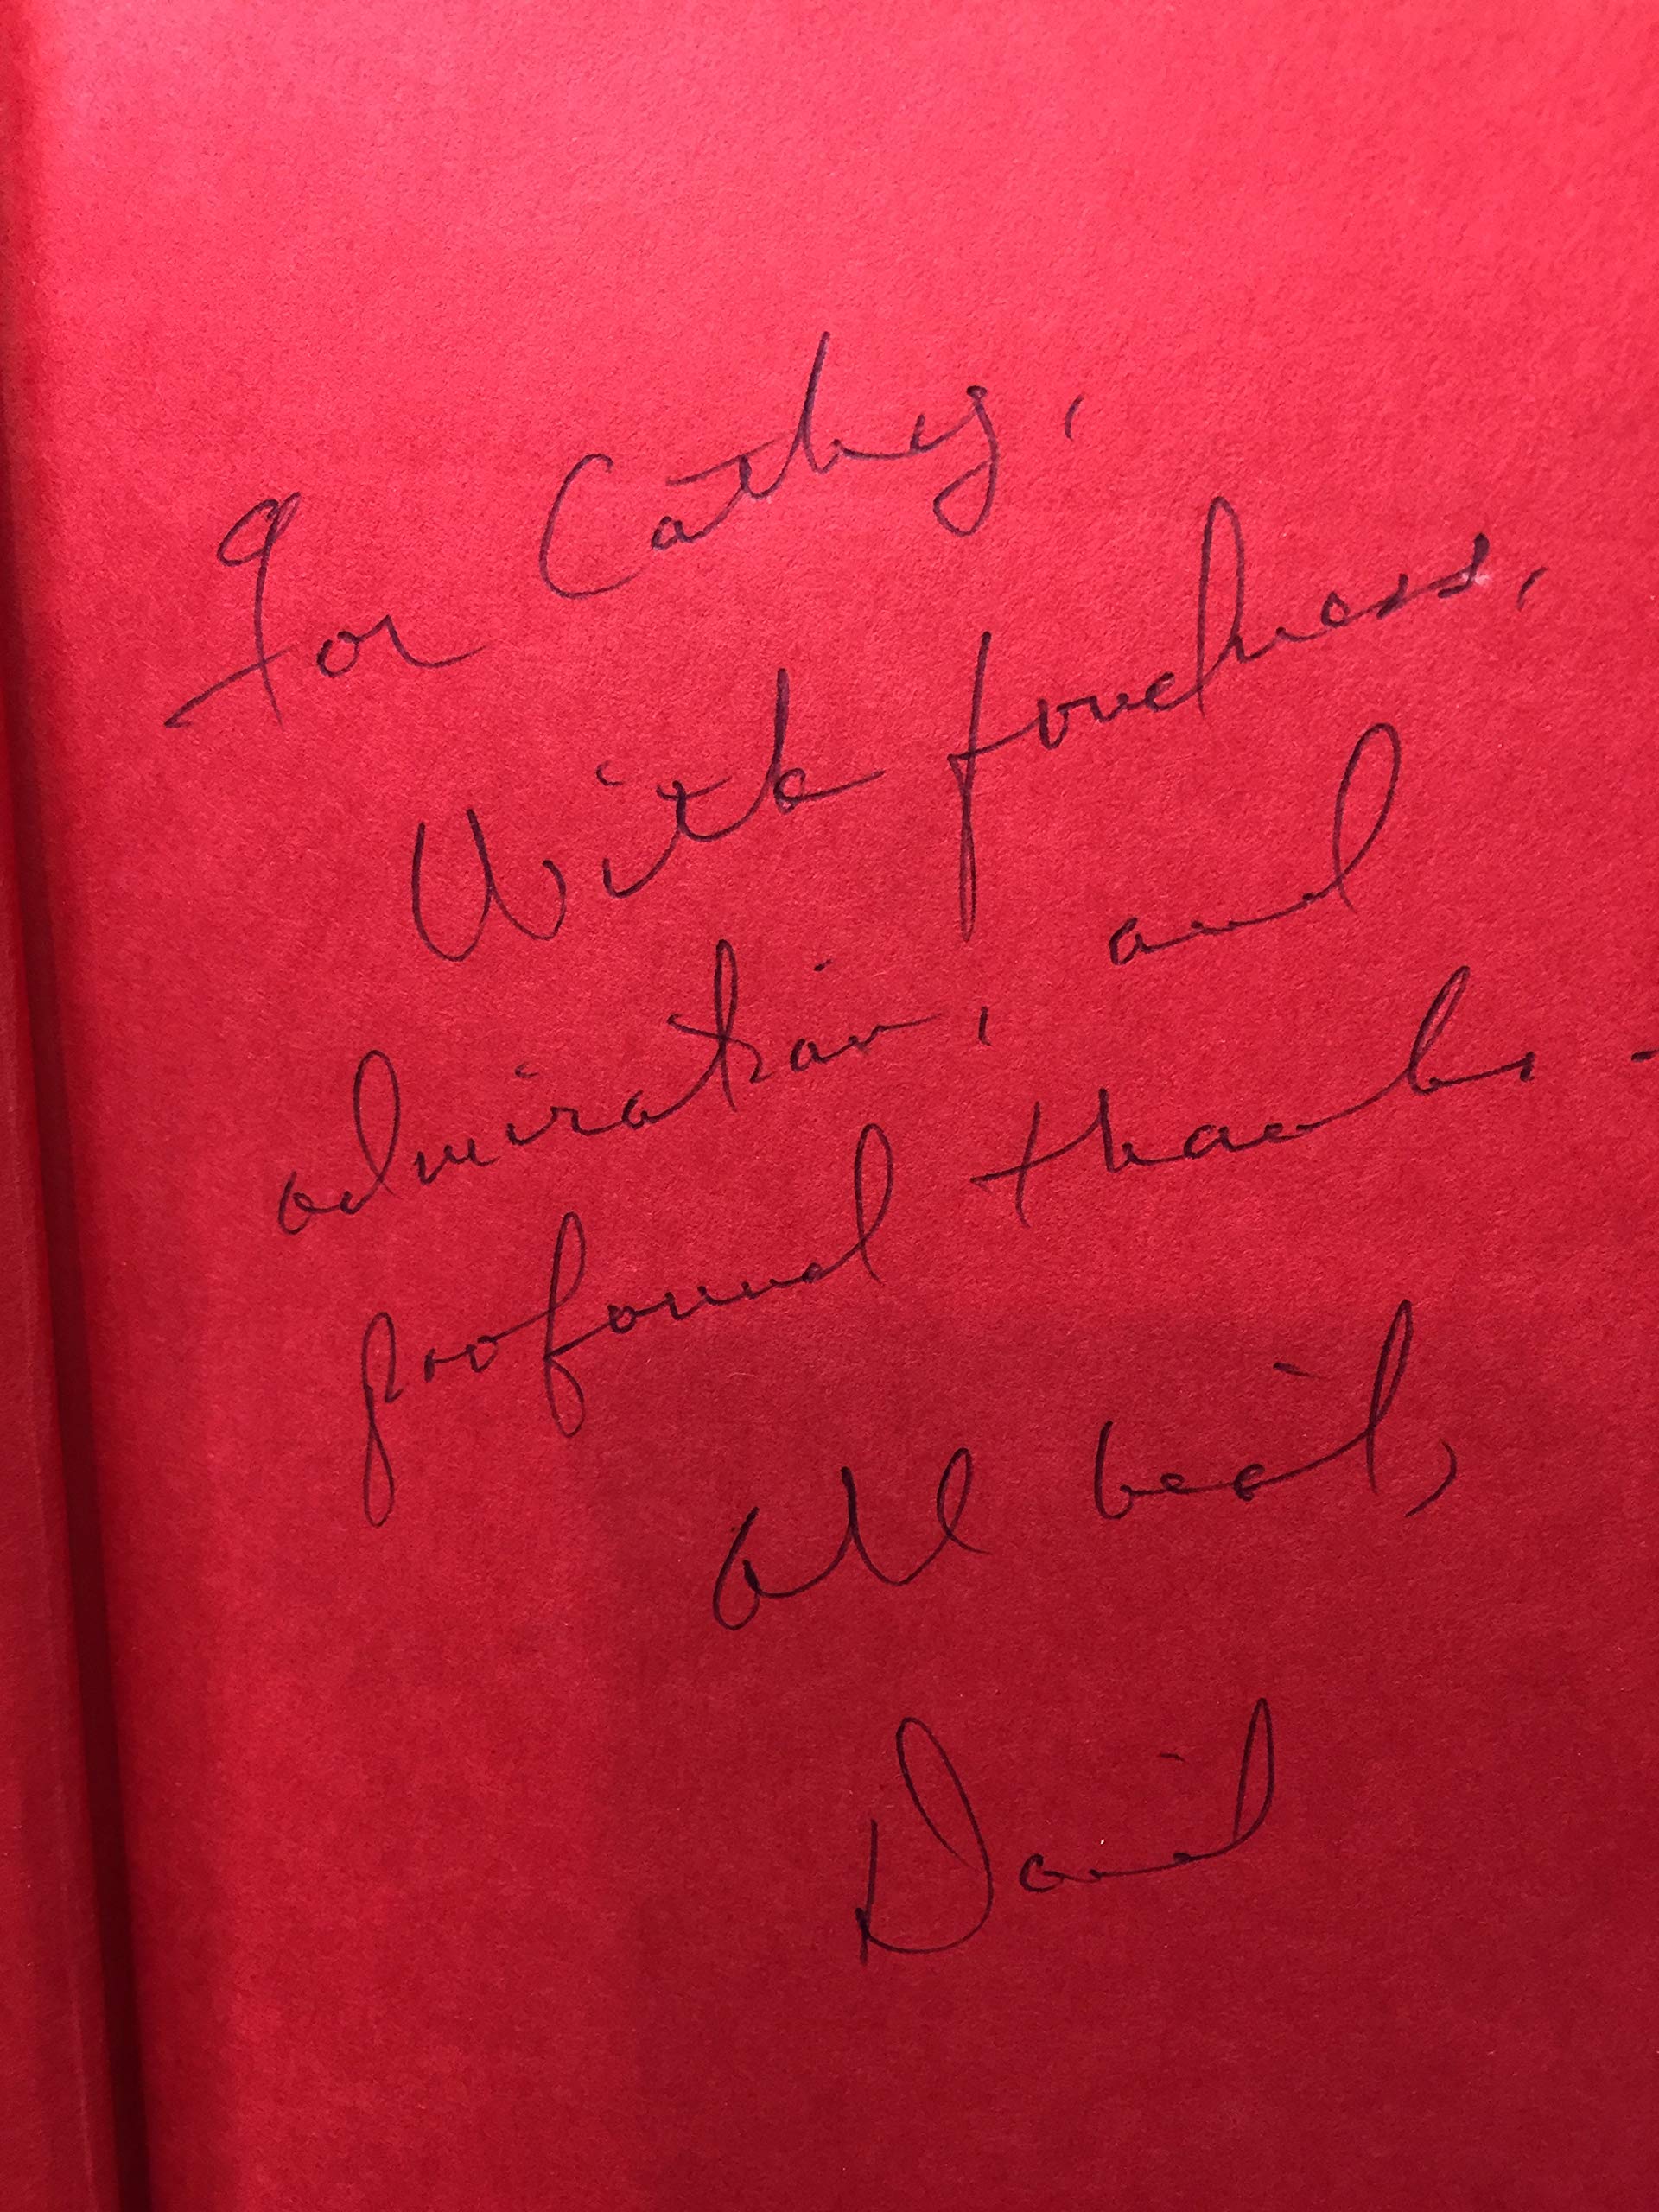 For Cathy,
With fondness,
admiration, and
profound thanks -
All best,
David